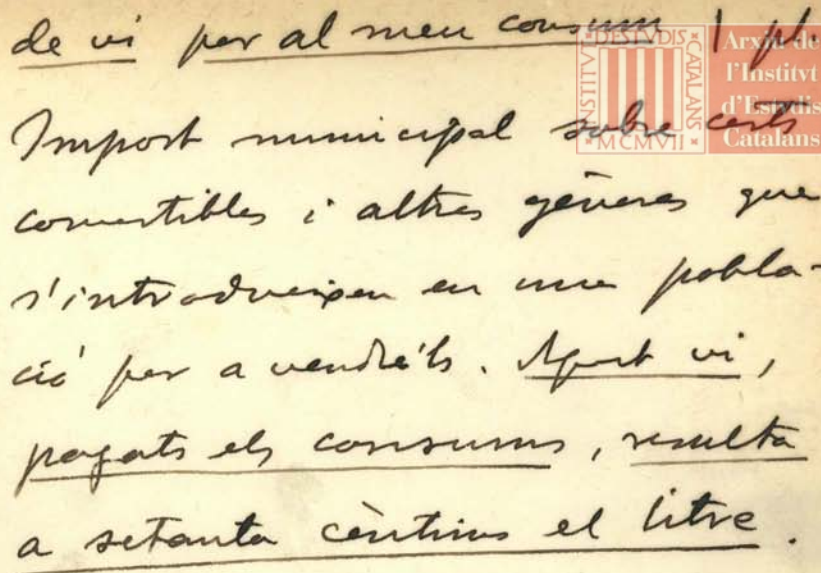 de vi per al meu consum | pl.
Import municipal sobre certs
comestibles i altres gèneres que
s'introdueixen en una pobla-
ció per a vendre'ls. Aquest vi,
pagats els consums, resulta
a setanta cèntims el litre.
INSTITVT D'ESTVDIS CATALANS
MCMVII
Arxiu de
l'Institvt
d'Estudis
Catalans